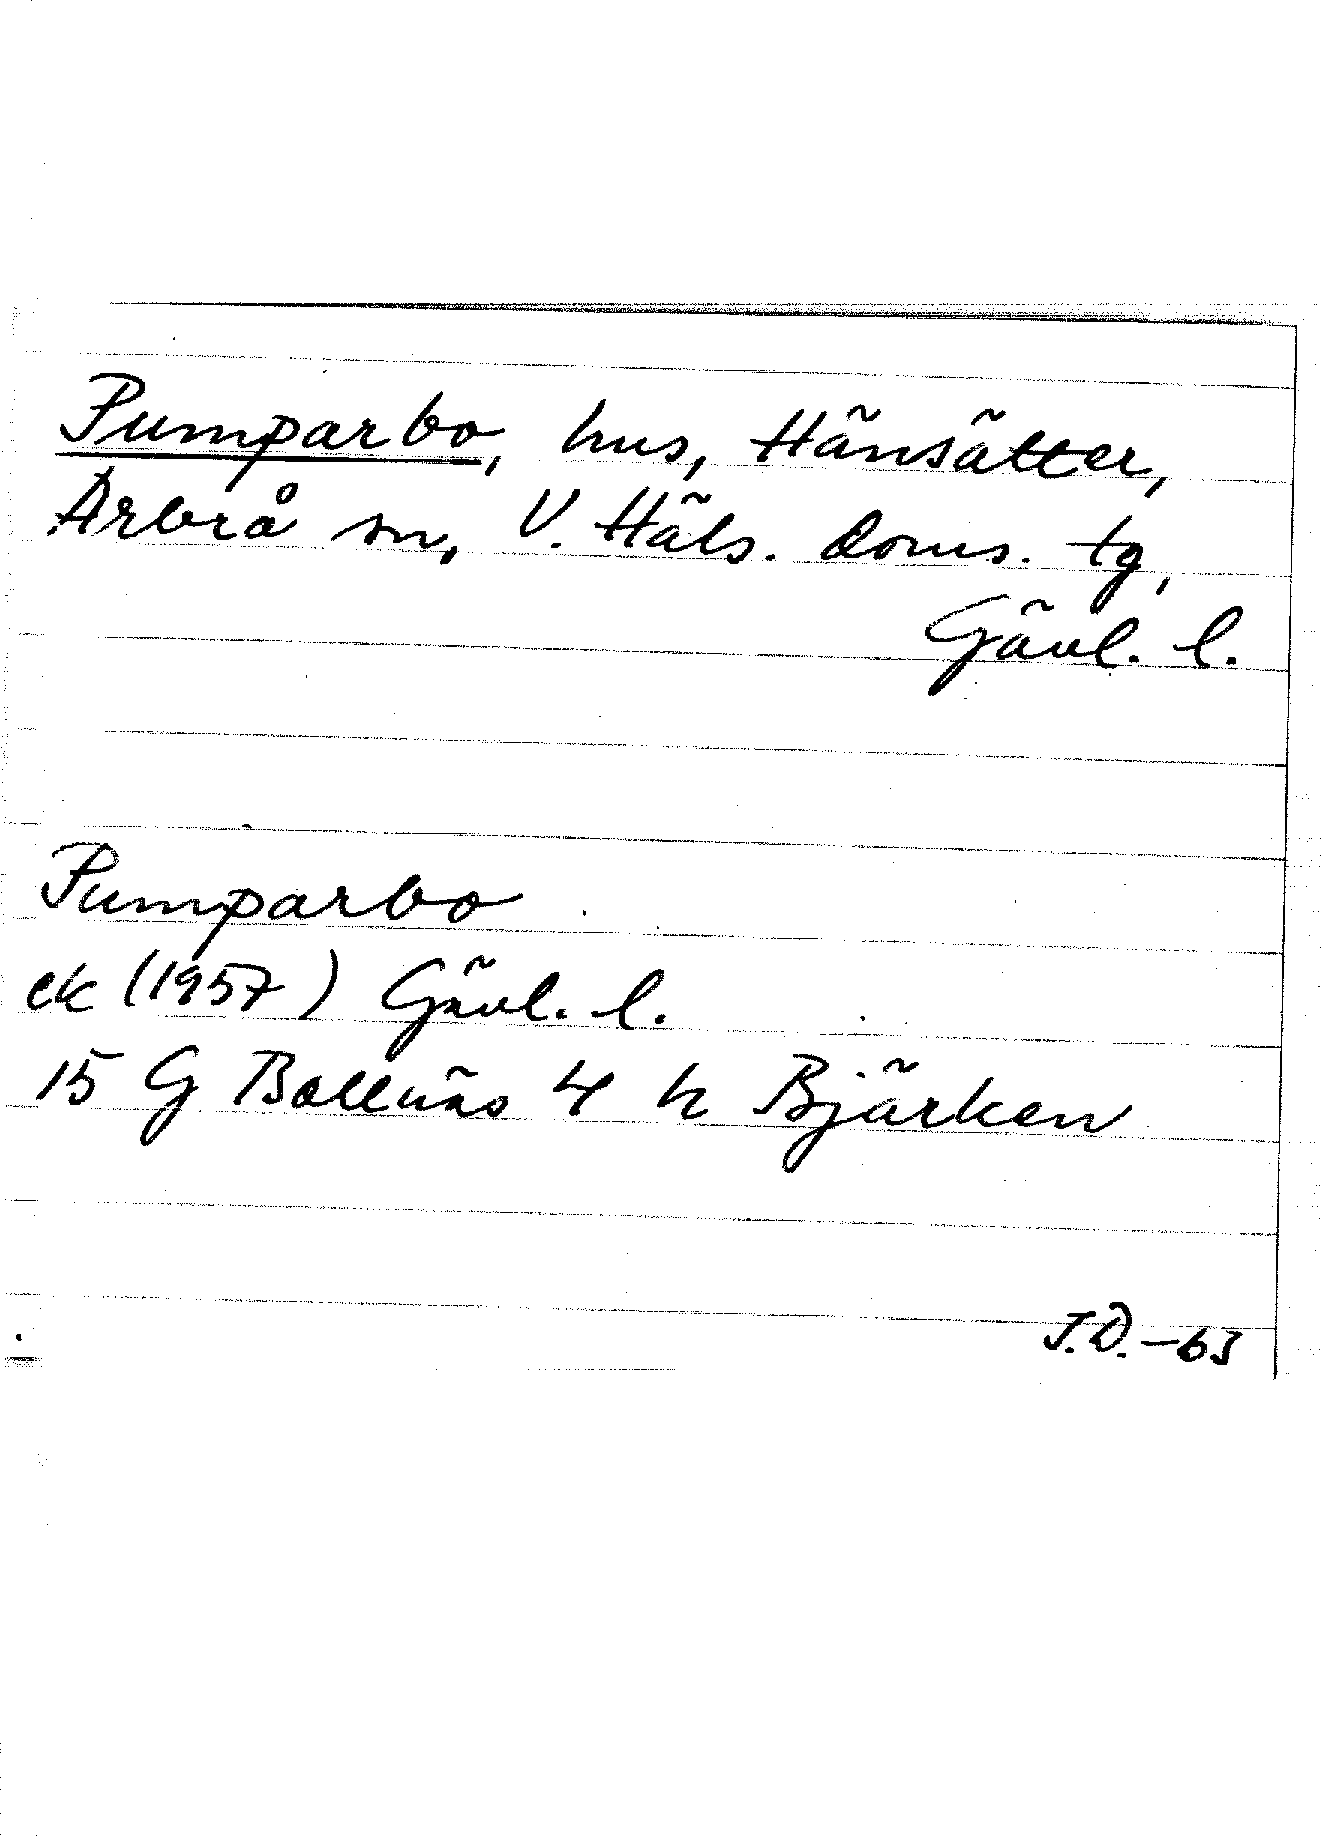 Pumparbo, hus, Hänsätter,
Arbrå sn, V. Häls. doms. tg,
Gävl. l.
Pumparbo
ek (1957) Gävl. l.
15 G Bollnäs 4 h Bjärken
J.D.-63